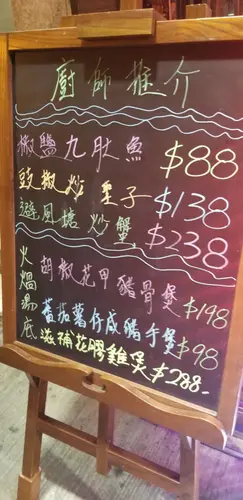 廚師推介
椒鹽九肚魚 $88
豉椒炒蟶子 $138
避風塘炒蟹 $238
火焗湯底
胡椒花甲豬骨煲 $198
蕃茄薯仔咸豬手煲 $98
滋補花膠雞煲 $288